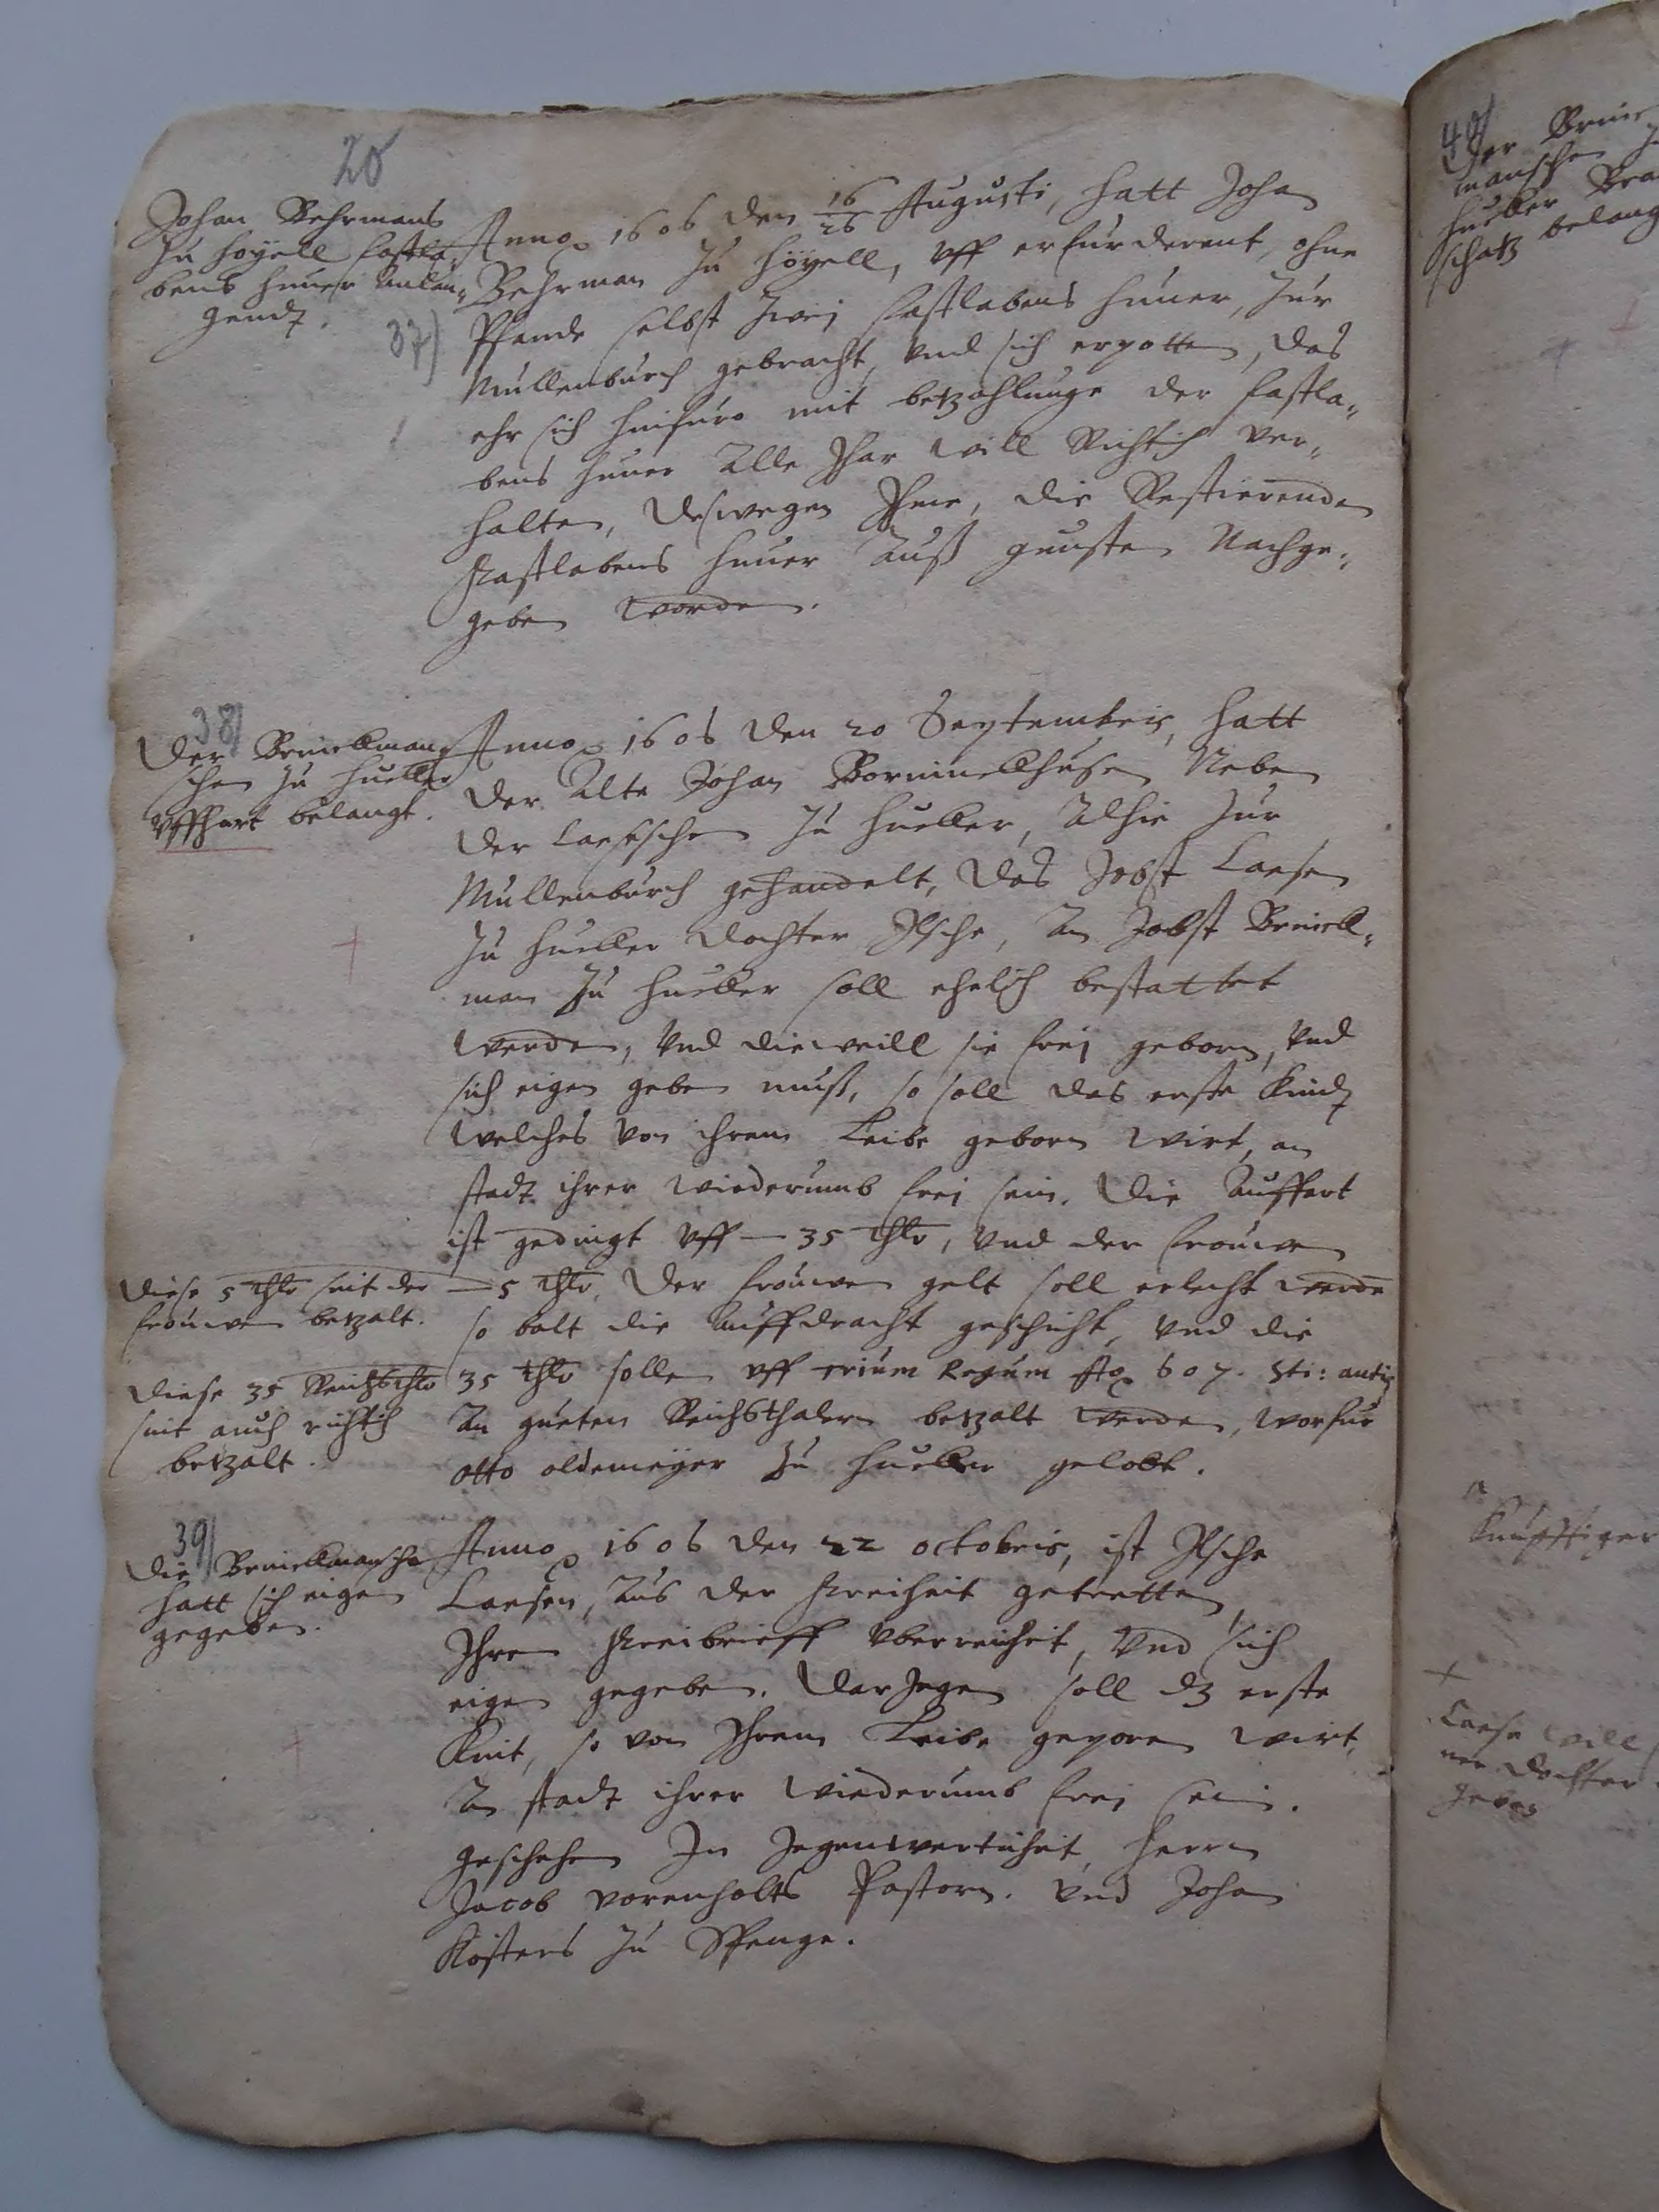 20
Johan Behrmans
zu Hoyell fastla„
bens huner anlan„
gendt.
37)
Anno 1606 den 16/26 Augusti, hatt Johan
Behrman zu Höyell, vff erfurderent, ohne
Pfande selbst zwej fastlabens hüner, zur
Mullenburch gebracht, vnd sich erpotten, das
ehr sich hinfuro mit betzahlunge der fastla„
bens huner alle Jhar will Richtich ver„
halten, deswegen Ihme, die Restierenden
Fastlabens huner auß gunsten Nachge„
geben worden.
38)
Der Bruiellman
schen zu Hueller
vffhart belangt.
Anno 1606 den 20 Septembris, hatt
der alte Johan Borninckhusen Neben
der Laerschen zu Hueller, alhie zur
Mullenburch gehandelt, das Jobst Laersen
zu Hueller dochter Ilsche, an Jobst Bruiell„
man zu Hueller soll ehelich bestattet
werden, vnd dieweill sie frej geborn, vnd
sich eigen geben muß, so soll das erste Kindt
welches von ihrem Leibe geborn wirt, an
stadt ihrer wiederumb frej sein. Die Auffart
ist gedingt vff — 35 thlr, vnd der frouwen
— 5 thlr. Der frouwen gelt soll erlecht werden
so balt die Auffdracht geschicht, vnd die
35 thlr sollen vff trium Regum Ao 607. sti: antiq
an gueten Reichsthalern betzalt werden, worfur
otto oldemeyer zu Hueller gelobt.
Diese 5 thlr seit der
frouwen betzalt.
Diese 35 Reichsthlr
sint auch richtich
betzalt.
39)
Die Bruiellmansche
hatt sich eigen
gegeben.
Anno 1606 den 22 octobris, ist Ilsche
Laersen, aus der Freiheit getretten,
Ihren Freibrieff vberreichet, vnd sich
eigen gegeben. Darjegen soll dz erste
Kint, so von Ihrem Leibe geporen wirt,
an stadt ihrer wiederumb frej sein.
Geschehen In Jegenwertichet, Herrn
Jacob vorenholts Pastorn. vnd Johan
Kösters zu Spenge.
40)
Der Bruie
manschen zu
Hueller Bra
schatz belang
Kunfftiger
Laerse will
ner Dochter
geben